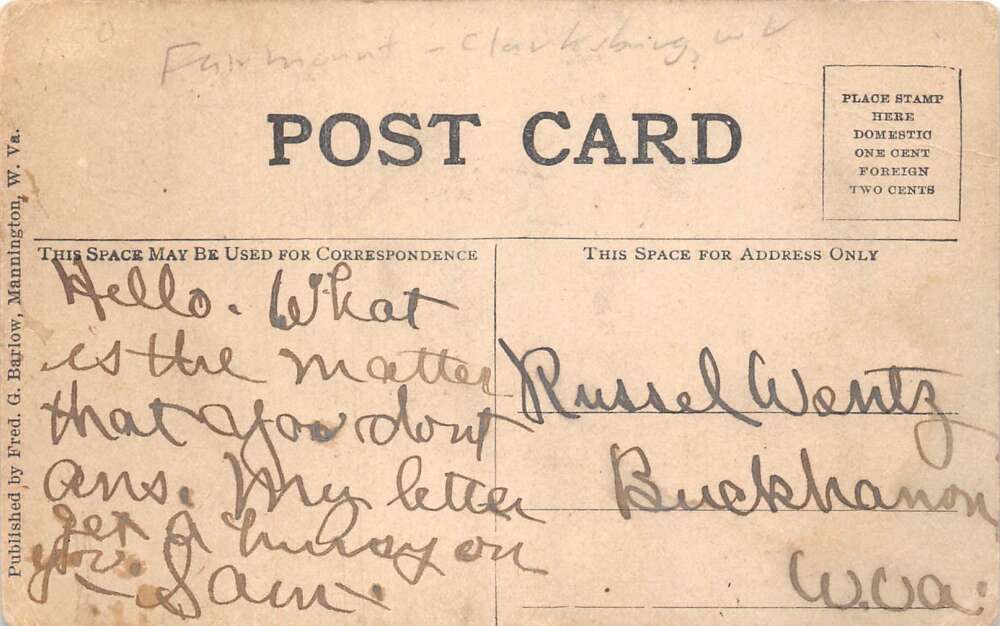 Fairmount - Clarksburg, W V
POST CARD
PLACE STAMP
HERE
DOMESTIC
ONE CENT
FOREIGN
TWO CENTS
Published by Fred. G. Barlow, Mannington, W. Va.
THIS SPACE MAY BE USED FOR CORRESPONDENCE
Hello. What
is the matter
that you dont
ans. My letter
get a hurry on
you.
- Sam.
THIS SPACE FOR ADDRESS ONLY
Russel Wentz
Buckhanon
W.Va.